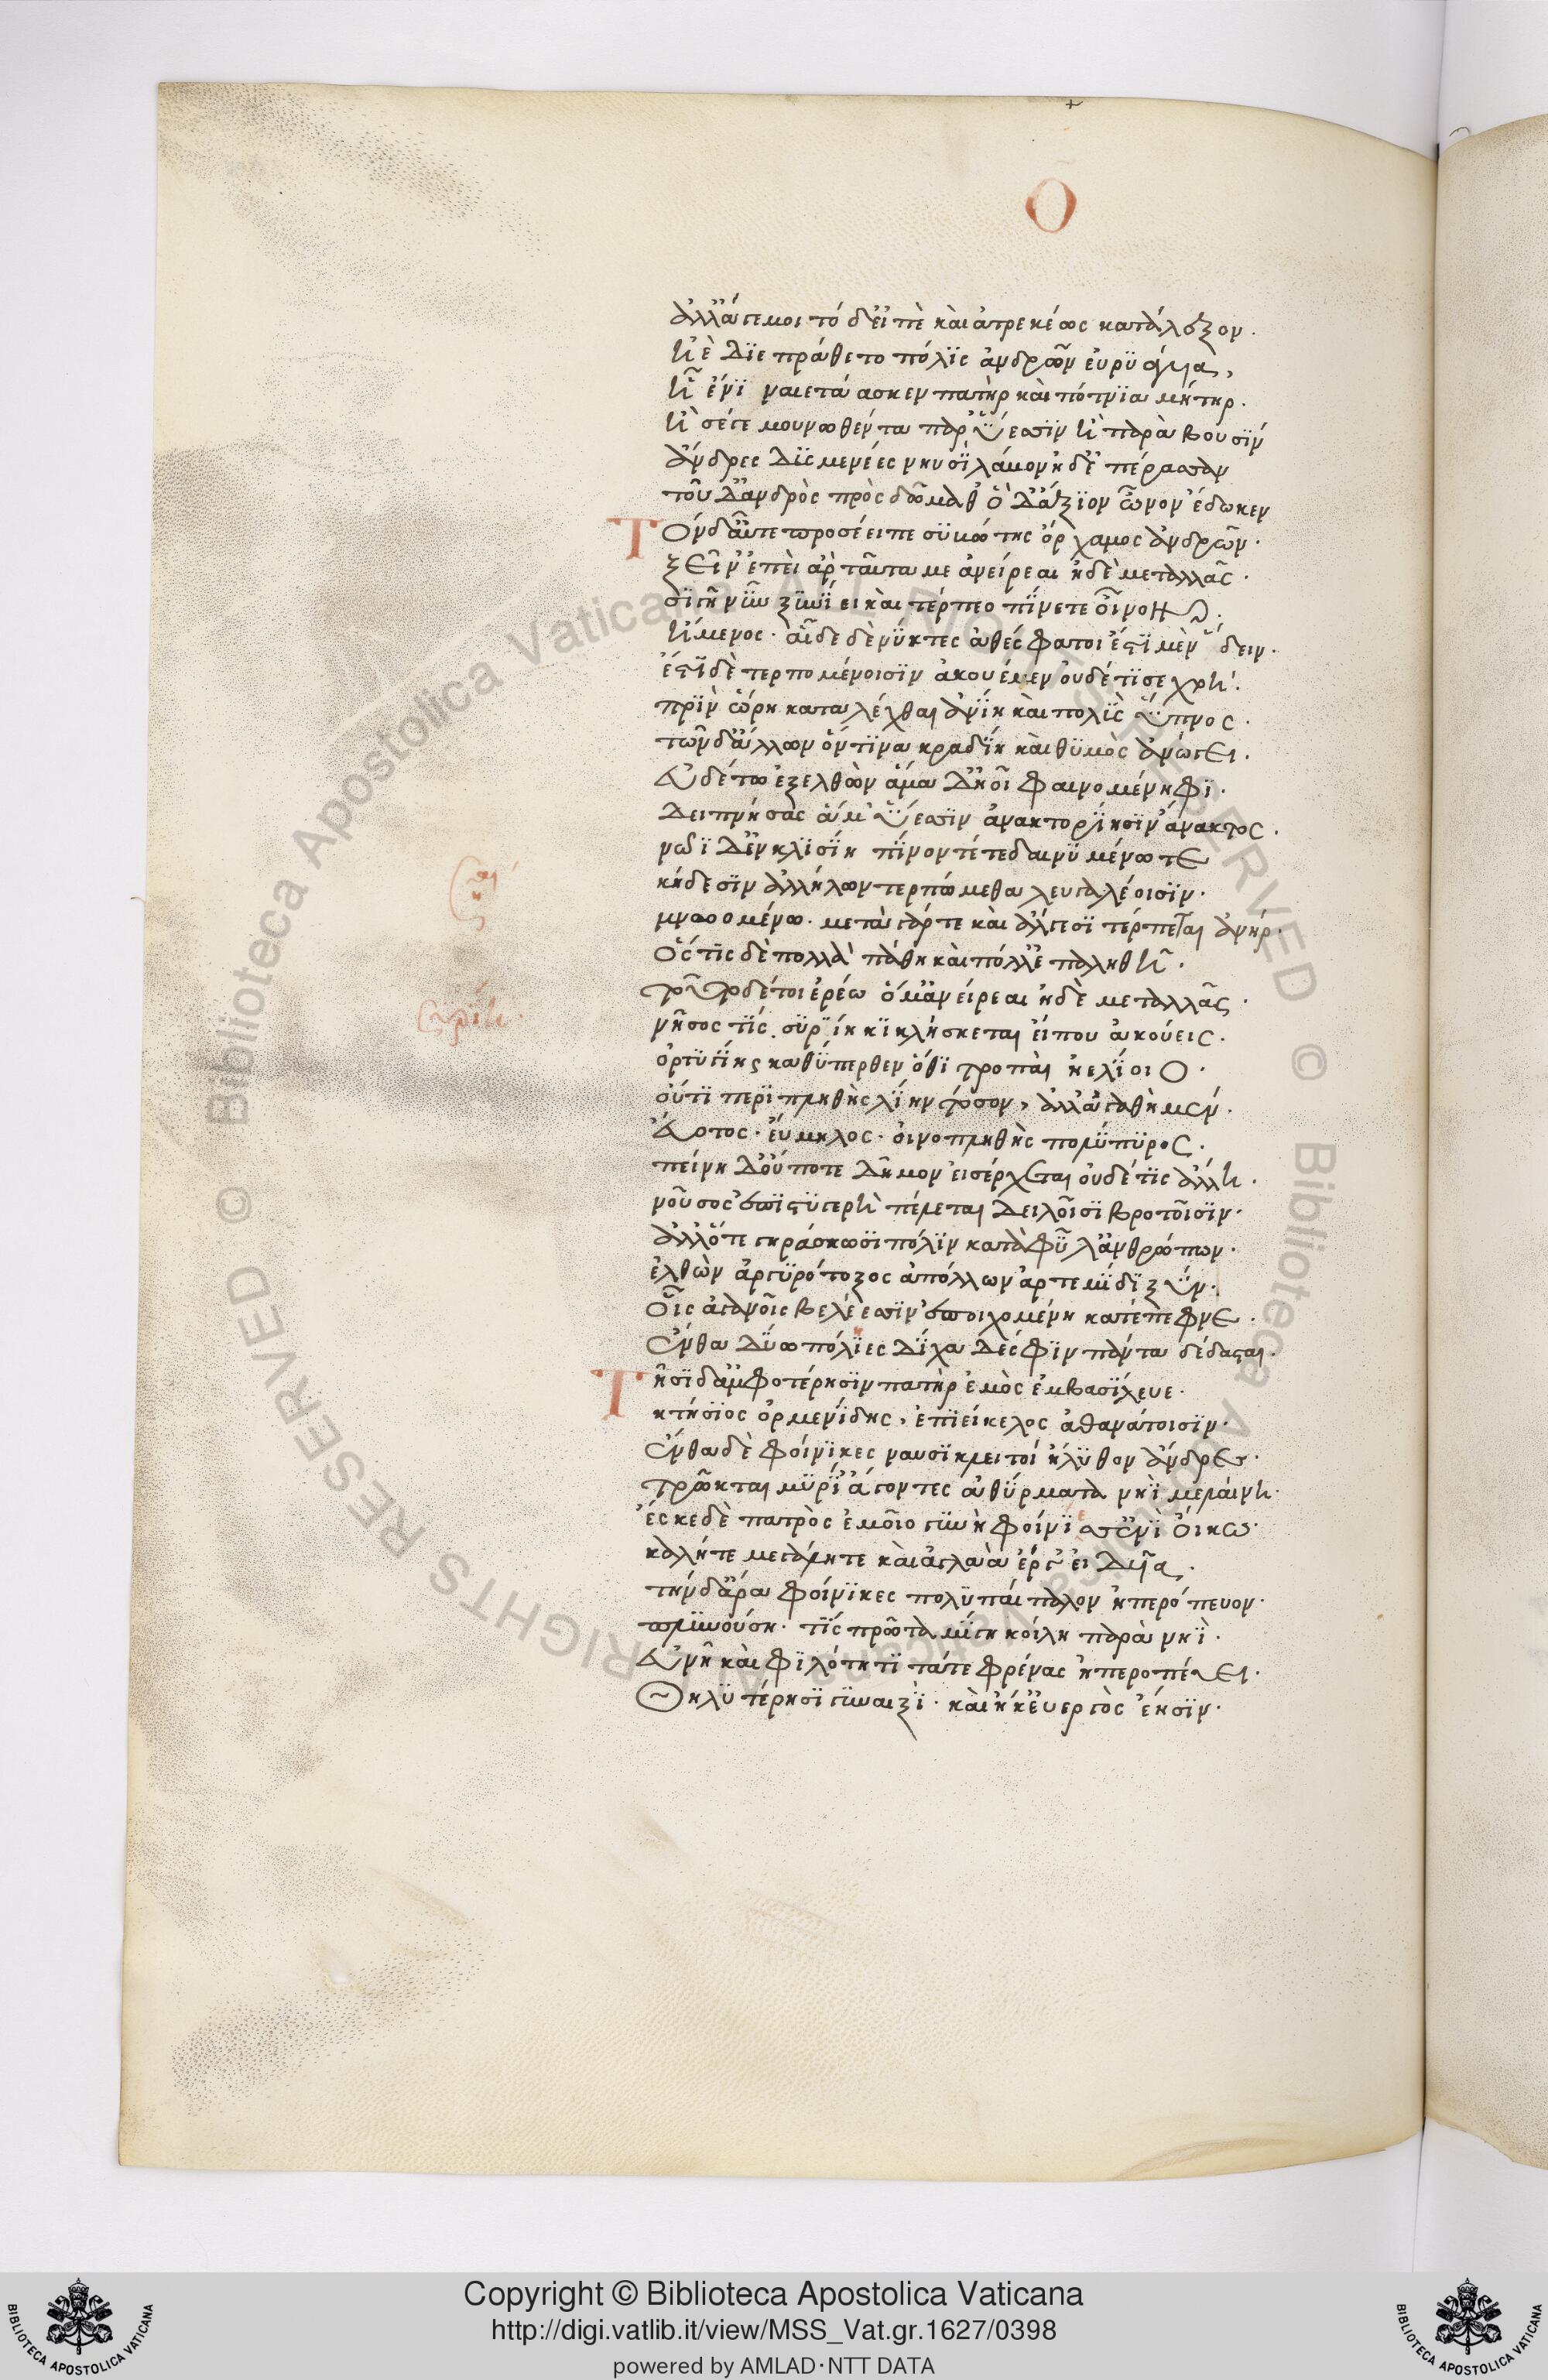 Ο
ἀλλ' ἄγε μοι τόδε εἰπὲ καὶ ἀτρεκέως κατάλεξον·
ἠὲ διεπράθετο πόλις ἀνδρῶν εὐρυάγυια,
ἧ ἔνι ναιετάασκεν πατὴρ καὶ πότνια μήτηρ·
ἢ σέ γε μουνωθέντα παρ' ὀΐεσσιν ἢ παρὰ βουσίν
ἄνδρες δυσμενέες νηυσὶ λάβον ἠδ' ἐπέρασσαν
τοῦδ' ἀνδρὸς πρὸς δώμαθ' ὁ δ' ἄξιον ὦνον ἔδωκεν
Τόνδ' αὖτε προσέειπε συβώτης ὄρχαμος ἀνδρῶν·
ξεῖν' ἐπεὶ ἂρ ταῦτά με ἀνείρεαι ἠδὲ μεταλλᾷς·
σιγῇ νῦν ξυνίει καὶ τέρπεο πῖνέ τε οἶνον
ἥμενος· αἵδε δὲ νύκτες ἀθέσφατοι ἔστι μὲν εὕδειν·
ἔστι δὲ τερπομένοισιν ἀκουέμεν οὐδέ τι σε χρή·
πρὶν ὥρη καταλέχθαι ἀνίη καὶ πολὺς ὕπνος·
τῶν δ' ἄλλων ὅντινα κραδίη καὶ θυμὸς ἀνώγει·
εὑδέτω ἐξελθὼν ἅμα δ' ἠοῖ φαινομένηφι·
δειπνήσας ἅμ' ὕεσσιν ἀνακτορίῃσιν ἄνακτος·
νῶϊ δ' ἐν κλισίῃ πίνοντέ τε δαινυμένω τε
κήδεσιν ἀλλήλων τερπώμεθα λευγαλέοισιν·
μνωομένω· μετὰ γάρ τε καὶ ἄλγεσι τέρπεται ἀνήρ·
ὅστις δὲ πολλὰ πάθη καὶ πόλλ' ἐπαληθῇ·
τοῦτο δέ τοι ἐρέω ὅ μ' ἀνείρεαι ἠδὲ μεταλλᾷς·
νῆσός τις συρίη κικλήσκεται εἴ που ἀκούεις·
ὀρτυγίης καθύπερθεν ὅθι τροπαὶ ἠελίοιο·
οὔτι περιπληθὴς λίην τόσον, ἀλλ' ἀγαθὴ μέν·
εὔβοτος· εὔμηλος· οἰνοπληθὴς πολύπυρος·
πείνη δ' οὔποτε δῆμον εἰσέρχεται οὐδέ τις ἄλλη·
νοῦσος ἐπὶ στυγερὴ πέλεται δειλοῖσι βροτοῖσιν·
ἀλλ' ὅτε γηράσκωσι πόλιν κατὰ φῦλ' ἀνθρώπων·
ἐλθὼν ἀργυρότοξος ἀπόλλων ἀρτέμιδι ξύν·
οἷς ἀγανοῖς βελέεσσιν ἐποιχομένη κατέπεφνε·
ἔνθα δύω πόλιες δίχα δέ σφιν πάντα δέδασται·
Τῇσι δ' ἀμφοτέρῃσιν πατὴρ ἐμὸς ἐμβασίλευε·
κτήσιος ὀρμενίδης, ἐπιείκελος ἀθανάτοισιν·
ἔνθα δὲ φοίνικες ναυσίκλειτοί ἤλυθον ἄνδρες·
τρῶκται μυρί' ἄγοντες ἀθύρματα νηῒ μελαίνῃ·
ἔσκε δὲ πατρὸς ἐμοῖο γυνὴ φοίνισσ' ἐνὶ οἴκω·
καλή τε μεγάλη τε καὶ ἀγλαὰ ἔργ' εἰδυῖα·
τὴν δ' ἄρα φοίνικες πολυπαίπαλον ἠπερόπευον·
πλυνούσῃ· τις πρῶτα μίγη κοίλη παρὰ νηῒ·
εὐνῇ καὶ φιλότητι τά τε φρένας ἠπεροπεύει·
θηλυτέρῃσι γυναιξὶ· καὶ ἥ κ' εὐεργὸς ἔῃσιν·
Copyright © Biblioteca Apostolica Vaticana
http://digi.vatlib.it/view/MSS_Vat.gr.1627/0398
powered by AMLAD·NTT DATA